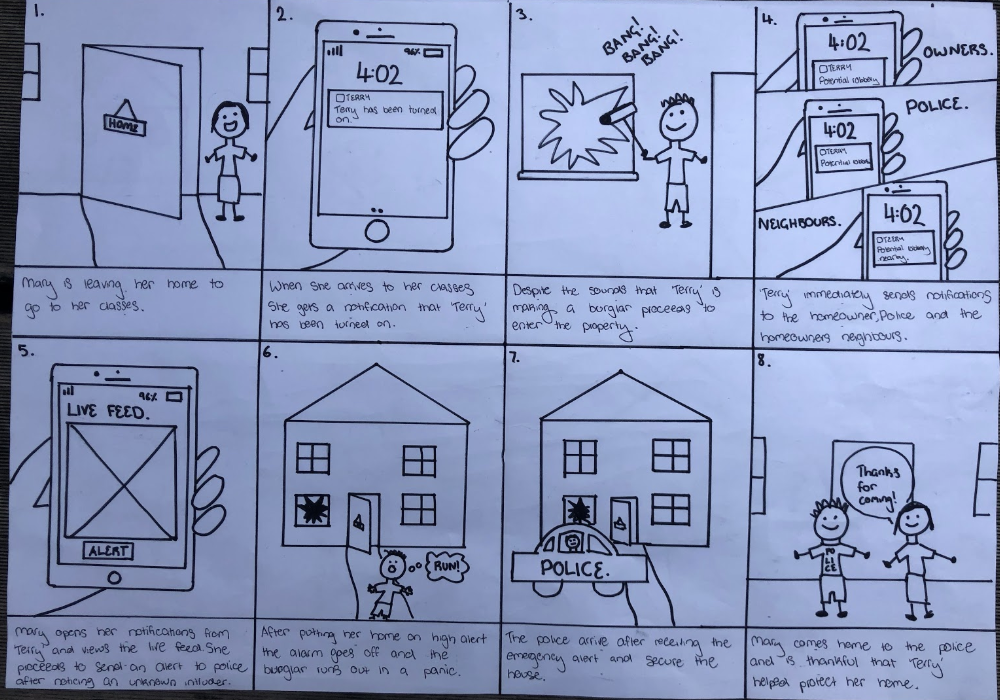 1.
HOME
Mary is leaving her home to
go to her classes.
2.
96%
4:02
TERRY
Terry has been turned
on.
When she arrives to her classes
She gets a notification that 'Terry'
has been turned on.
3.
BANG!
BANG!
BANG!
Despite the sounds that 'Terry' is
making, a burglar proceeds to
enter the property.
4.
4:02
TERRY
Potential robbery
OWNERS.
POLICE.
4:02
TERRY
Potential
NEIGHBOURS.
4:02
TERRY
Potential robbery
nearby.
'Terry' immediately sends notifications
to the homeowner, Police and the
homeowners neighbours.
5.
96%
LIVE FEED.
ALERT
Mary opens her notifications from
'Terry' and views the live feed. She
proceeds to send an alert to police
after noticing an unknown intruder.
6.
RUN!
After putting her home on high alert
the alarm goes off and the
burglar runs out in a panic.
7.
POLICE.
The police arrive after receiving the
emergency alert and secure the
house.
8.
Thanks
for
coming!
PO
LI
CE
Mary comes home to the police
and is thankful that 'Terry'
helped protect her home.